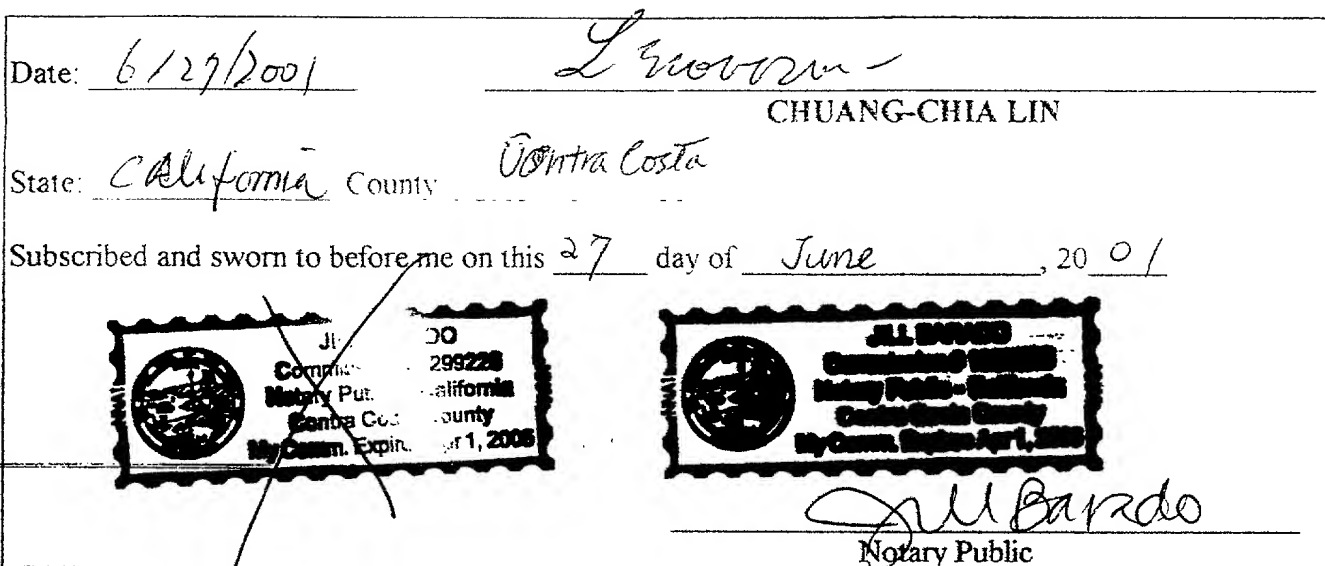 Date: 6/27/2001
CHUANG-CHIA LIN
State: California County Contra Costa
Subscribed and sworn to before me on this 27 day of June, 20 01
JI DO
Comm 299226
Notary Pub. California
Contra Cos. ounty
My Comm. Expir. pr 1, 2005
JILL BARADO
Commission #
Notary Public - California
Contra Costa County
My Comm. Expires Apr 1, 2005
Jill Barado
Notary Public